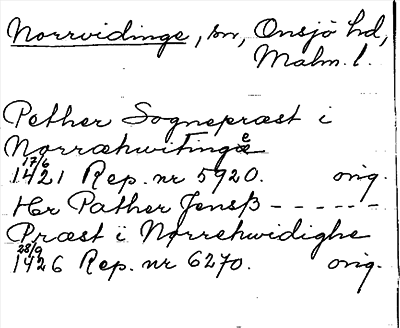 Norrvidinge, sn, Onsjö hd,
Malm. l.
Pether Sognepræst i
Norræhwitingæ e
17/6
1421 Rep. nr 5920. orig.
Hr Pather Jensß - - - - -
Præst i Nørrehwidighe
28/9
1426 Rep. nr 6270. orig.